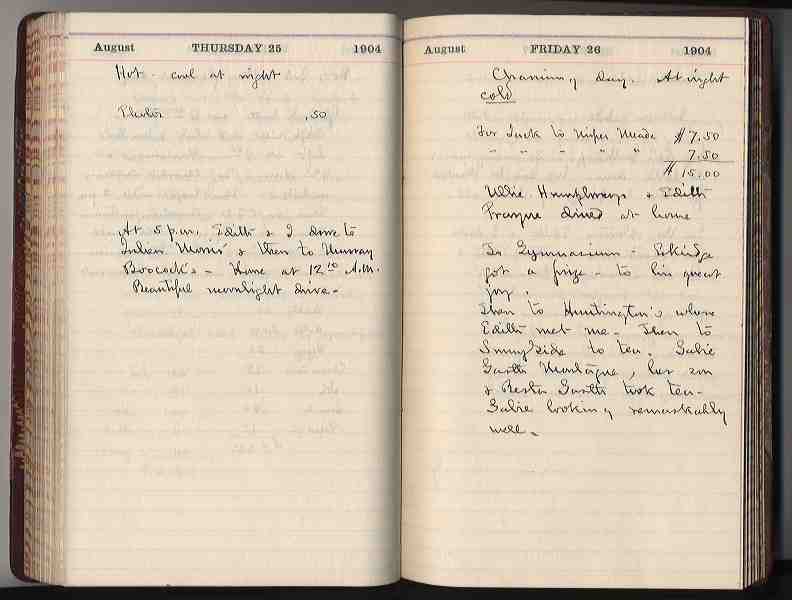 August THURSDAY 25 1904
Hot - cool at night
.50
At 5 p.m. Edith & I drove to
Julian Morris' & then to Murray
Boocock's - Home at 12¹⁰ A.M.
Beautiful moonlight drive -
August FRIDAY 26 1904
Charming day. At night
cold
For Jack to Miper Meade $7.50
" " " " " 7.50
$15.00
Ullie Humphreys & Edith
Frayne dined at home
To Gymnasium - Eskridge
got a prize - to his great
joy.
Then to Huntington's where
Edith met me - Then to
Sunnyside to tea. Gabie
Garth Montague, her son
& Garth took tea -
Gabie looking remarkably
well.